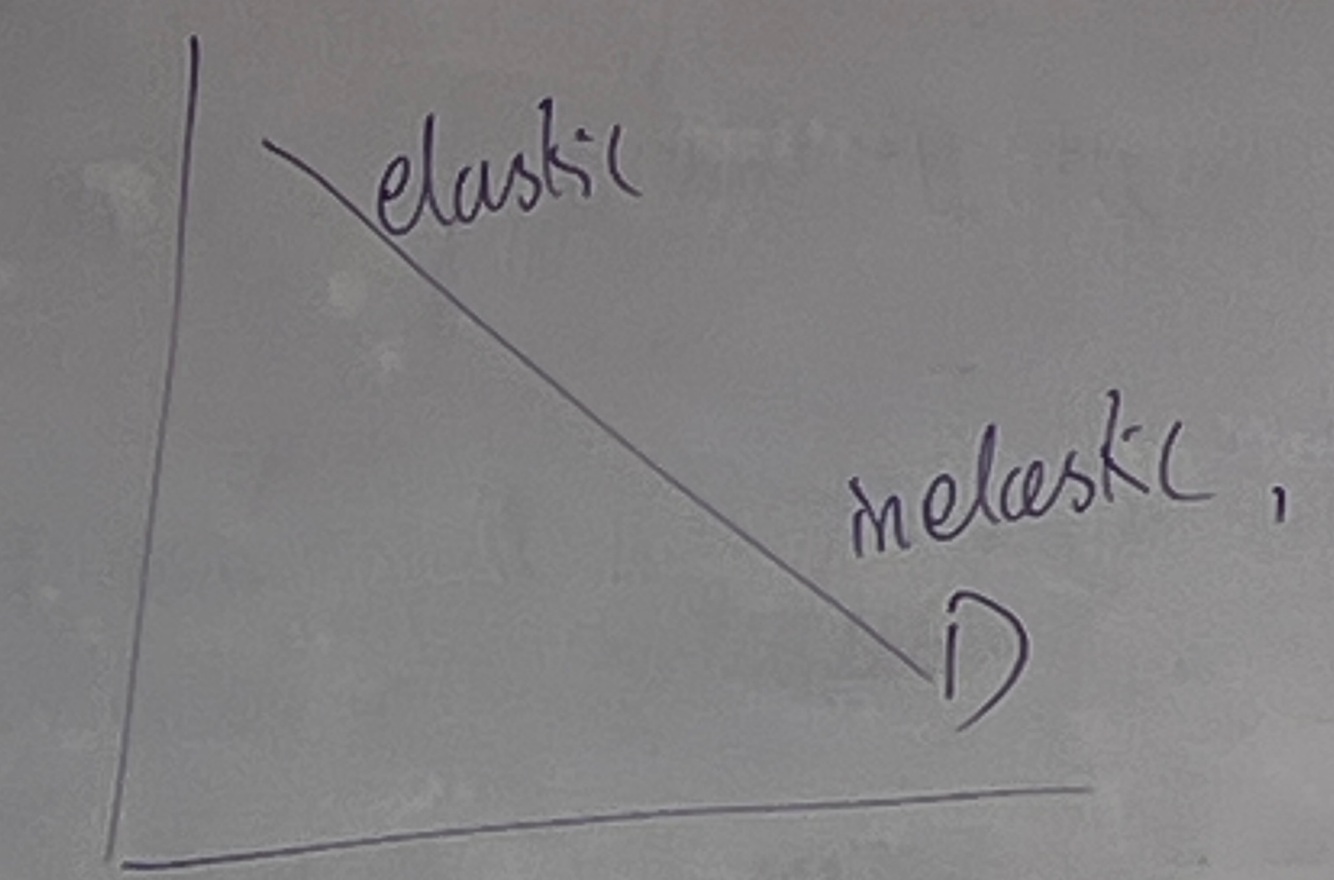 elastic
inelastic,
D